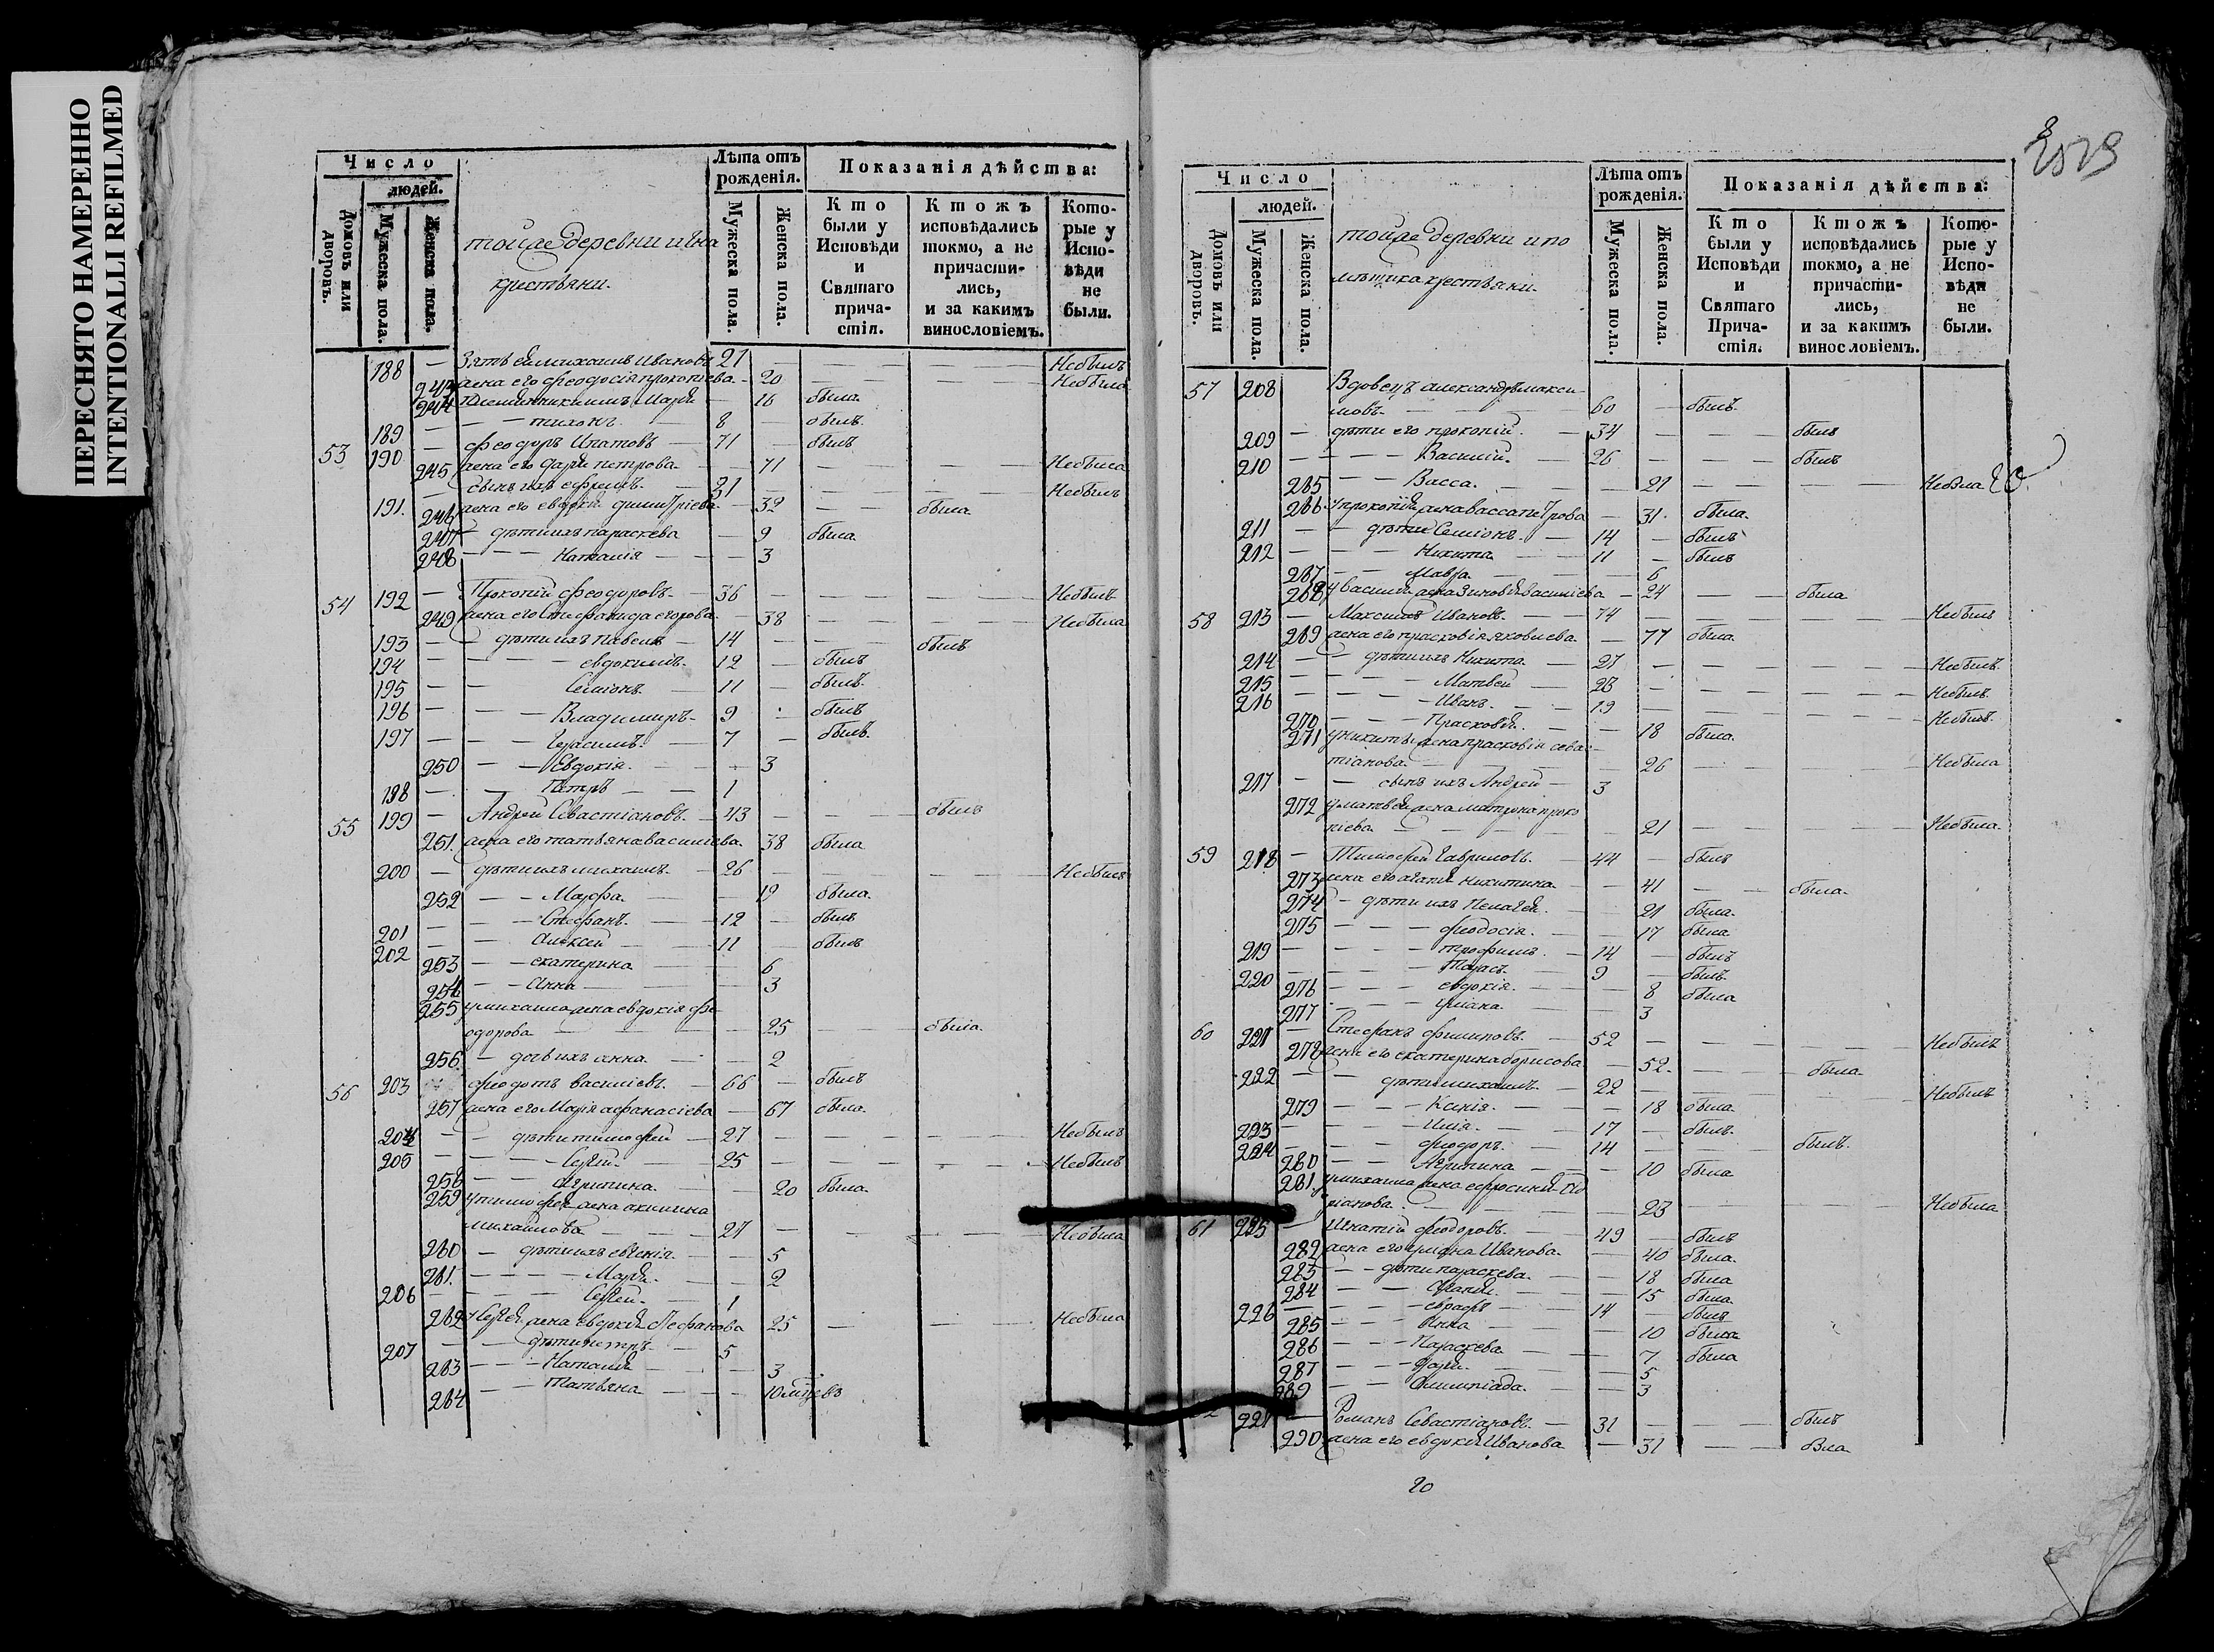 ПЕРЕСНЯТО НАМЕРЕННО
INTENTIONALLI REFILMED
Число
людей.
Домовъ или дворовъ.
Мужеска пола.
Женска пола.
тойже деревни
крестьяни.
Лѣта отъ рожденія.
Мужеска пола.
Женска пола.
Показанія дѣйства:
Кто были у Исповѣди и Святаго причастія.
Ктожъ исповѣдались токмо, а не причастились, и за какимъ винословіемъ.
Которые у Исповѣди не были.
188 — Зять ея михаилъ Ивановъ 27 — — — Небылъ
243 жена его феодосія прокопіева — 20 — — Небыла
244 Марія — 16 была
189 — — тихонъ 8 — былъ
53 190 — феодоръ Ипатовъ — 71 — былъ
245 жена его дарія петрова — 71 — — Небыла
191. — сынъ ихъ ефремъ — 31 — — Небылъ
246 жена его евдокія димитріева — 32 — была
247 — дѣти ихъ параскева — 9 была
248 — — Наталія — 3
54 192 — Прокопій феодоровъ — 36 — — — Небылъ
249 жена его Стефанида егорова — 38 — — Небыла
193 — дѣти ихъ павелъ — 14 — — былъ
194 — — евдокимъ 12 — былъ
195 — — Симіонъ — 11 — былъ
196 — — Владимиръ — 9 былъ
197 — — Герасимъ — 7 — былъ
250 — — Евдокія — 3
198 — — Петръ — 1
55 199 — Андрей Севастіановъ — 43 — — былъ
251. жена его татьяна василіева 38 была
200 — дѣти ихъ михаилъ — 26 — — Небылъ
252 — — Марфа — 19 была
201 — — Стефанъ — 12 — былъ
202 — — Алексей — 11 — былъ
253 — — екатерина — 6
254 — — Анна — 3
255 у михаила жена евдокія фе-
одорова — 25 — была
256 — дочь ихъ анна — 2
56 203 феодотъ василіевъ — 66 — былъ
257 жена его Марія афанасіева — 67 была
204 — дѣти тимофей — 27 — — Небылъ
205 — — Сергей — 25 — — Небылъ
258 — — Агрипина — 20 была
259 у тимофея жена акилина
михаилова — 27 — — Небыла
260 — дѣти ихъ евгенія — 5
261. — — Марія — 2
206 — — Сергей — 1
262 у Сергея жена евдокія Стефанова 25 — — Небыла
207 — дѣти петръ — 5
263 — — Наталія — 3
264 — — Татьяна — 10 мѣсецъ
Число
людей.
Домовъ или дворовъ.
Мужеска пола.
Женска пола.
тойже деревни и по
мѣщика крестьяни.
Лѣта отъ рожденія.
Мужеска пола.
Женска пола.
Показанія дѣйства:
Кто были у Исповѣди и Святаго Причастія.
Ктожъ исповѣдались токмо, а не причастились, и за какимъ винословіемъ.
Которые у Исповѣди не были.
57 208 Вдовецъ александръ макси-
мовъ — 60 — былъ
209 — дѣти его прокопій — 34 — — былъ
210 — — Василій — 26 — — былъ
265 — — Васса — 21 — — Небыла
266 у прокопія жена васса петрова — 31. была
211 — дѣти Симіонъ — 14 — былъ
212 — — Никита — 11 — былъ
267 — — Мавра — 6
268 у василія жена Зиновія василіева — 24 — была
58 213 — Максимъ Ивановъ — 74 — — Небылъ
269 жена его прасковія яковлева — 77 была
214 — дѣти ихъ Никита — 27 — — Небылъ
215 — — Матвей — 23 — — Небылъ
216 — — Иванъ — 19 — — Небылъ
270 — — Прасковія — 18 была
271 у никиты жена прасковія сева-
тіанова — 26 — — Небыла
217 — сынъ ихъ Андрей — 3
272 у матвея жена матрона проко
піева — 21 — — Небыла
59 218 — Тимофей Гавриловъ — 44 — былъ
273 жена его агапія Никитина — 41 — была
274 — дѣти ихъ Пелагея — 21 была
275 — — феодосія — 17 была
219 — — трофимъ — 14 — былъ
220 — — Тарасъ — 9 — былъ
276 — — евдокія — 8 была
277 — — уліана — 3
60 221 — Стефанъ филиповъ — 52 — — Небылъ
278 жена его екатерина борисова — 52 — была
222 — дѣти михаилъ — 22 — — Небылъ
279 — — Ксенія — 18 была
223 — — Илія — 17 — былъ
224 — — феодоръ — 14 — — былъ
280 — — Агрипина — 10 была
281. у михаила жена ефросинія
ріанова — 23 — — Небыла
61 225 — Игнатій феодоровъ — 49 — былъ
282 жена его Иванова — 40 была
283 — дѣти параскева — 18 была
284 — — Агапія — 15 была
226 — — — 14 былъ
285 — — Анна — 10 была
286 — — Параскева — 7 была
287 — — дарія — 5
289 — — Олимпіада — 3
227 — Романъ Севастіановъ — 31 — — былъ
290 жена его евдокія Иванова — 31 — была
20